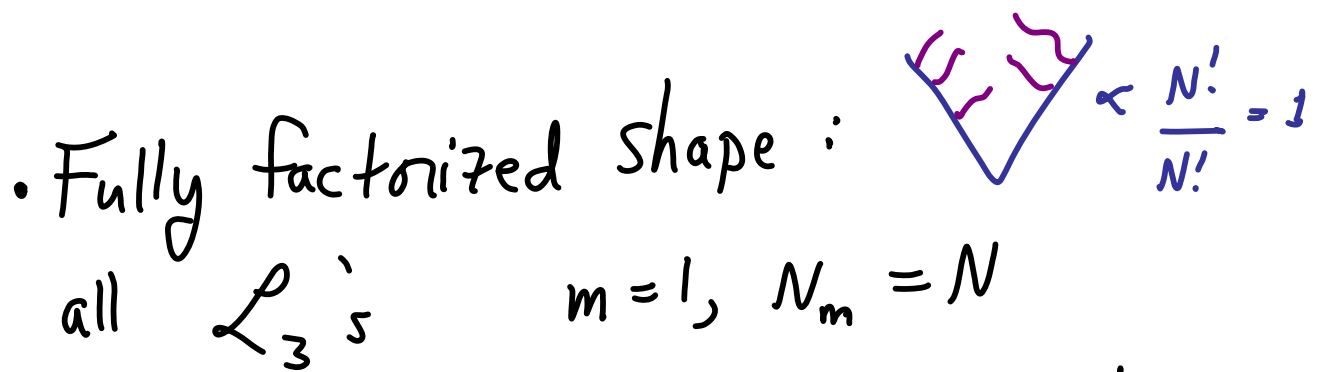 • Fully factorized shape : ∝ N!/N! = 1
all ℒ₃'s m = 1, Nₘ = N